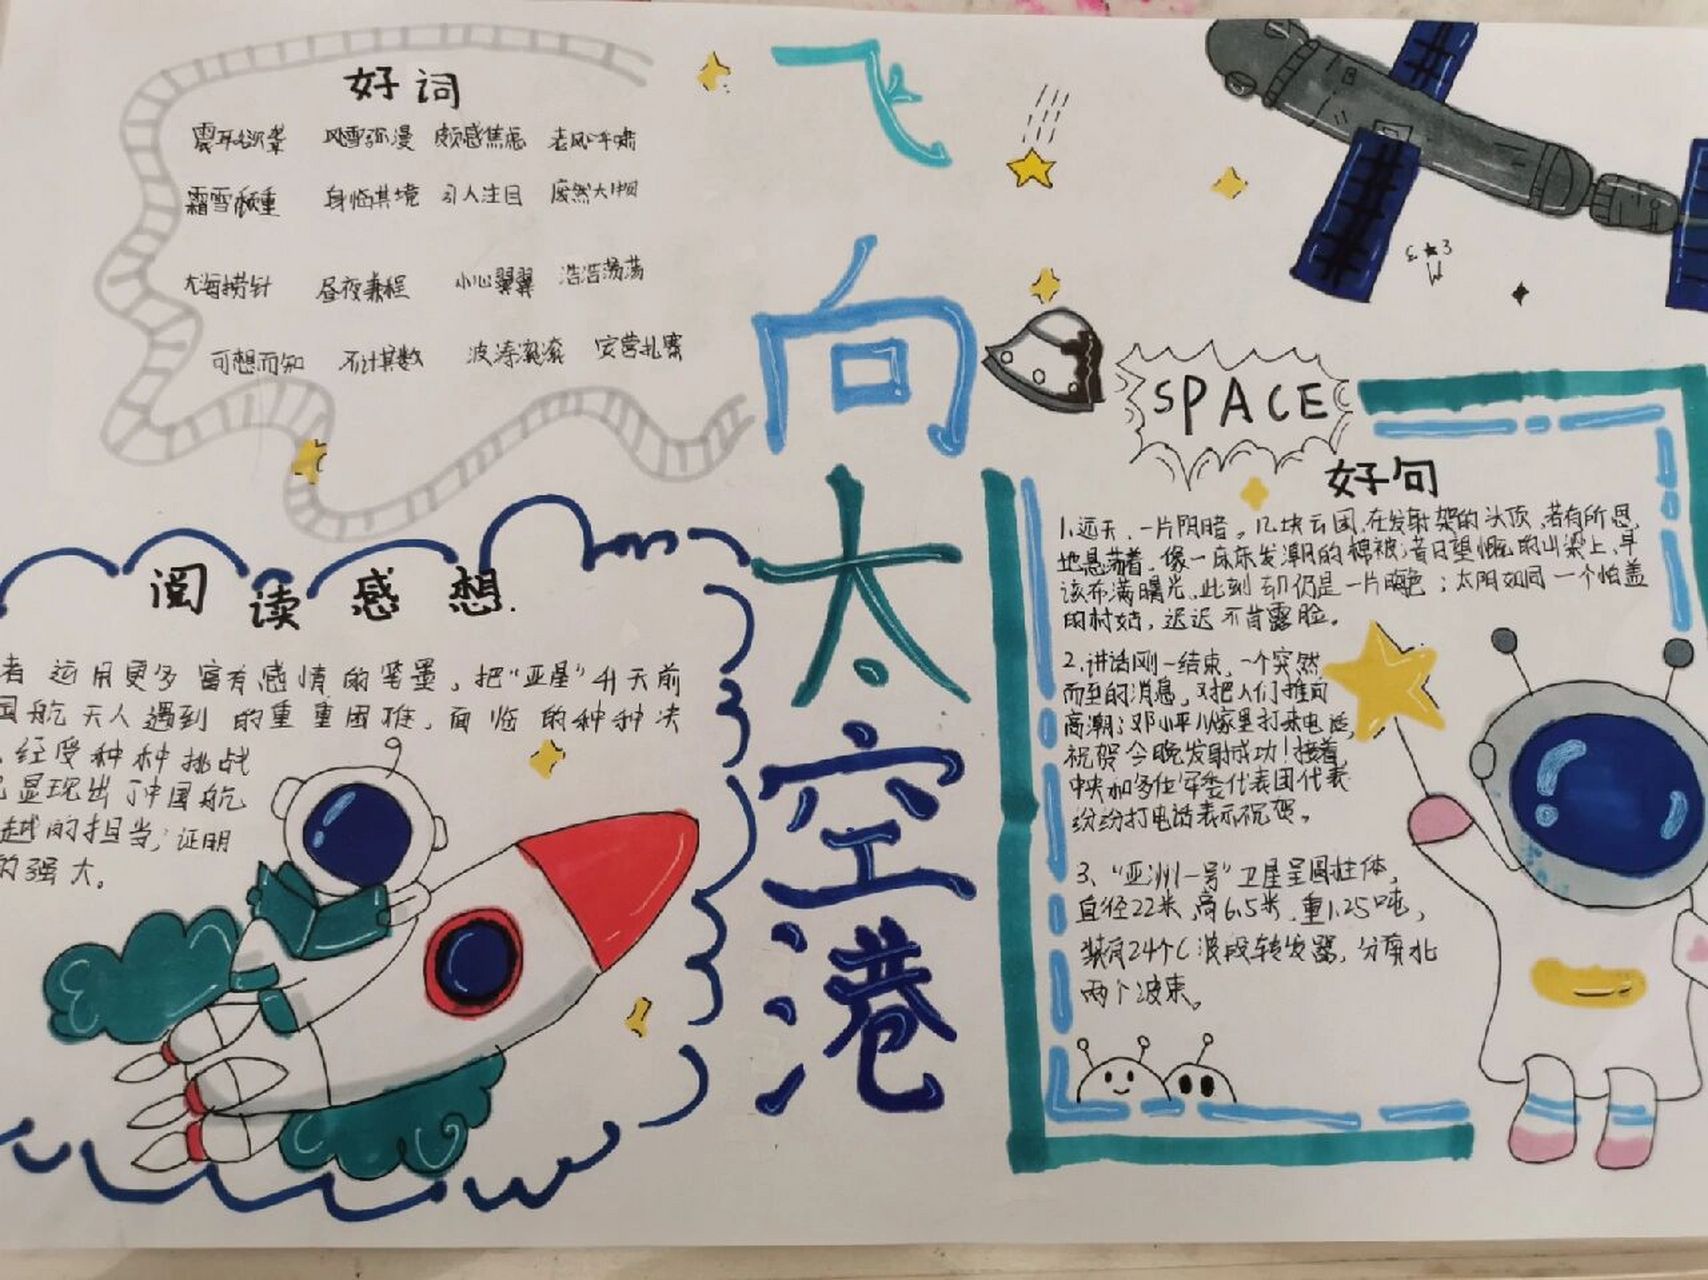 飞向太空港
好词
震耳欲聋 风雪弥漫 颇感焦虑 老风呼啸
霜雪颇重 身临其境 引人注目 庞然大物
大海捞针 昼夜兼程 小心翼翼 浩浩荡荡
可想而知 不计其数 波涛滚滚 安营扎寨
阅读感想.
者运用更多富有感情的笔墨。把“亚星”升天前
国航天人遇到的重重困难，面临的种种决
，经受种种挑战
显现出了中国航
越的担当；证明
的强大。
SPACE
好句
1.远天，一片阴暗。几块云团，在发射架的头顶，若有所思
地悬荡着，像一床床发潮的棉被；昔日望惯的山梁上，早
该布满曙光，此刻却仍是一片晦色；太阳如同一个怕羞
的村姑，迟迟不肯露脸。
2.讲话刚一结束，一个突然
而至的消息，又把人们推向
高潮；邓小平从家里打来电话，
祝贺今晚发射成功！接着，
中央和多位军委代表团代表
纷纷打电话表示祝贺。
3、“亚洲一号”卫星呈圆柱体，
直径22米，高6.5米，重1.25吨，
装有24个C波段转发器，分南北
两个波束。